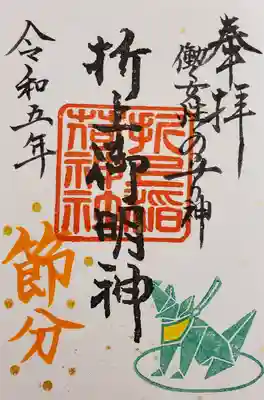 奉拝
働く女性の守り神
折上御明神
折上稲
荷神社
令和五年
節分